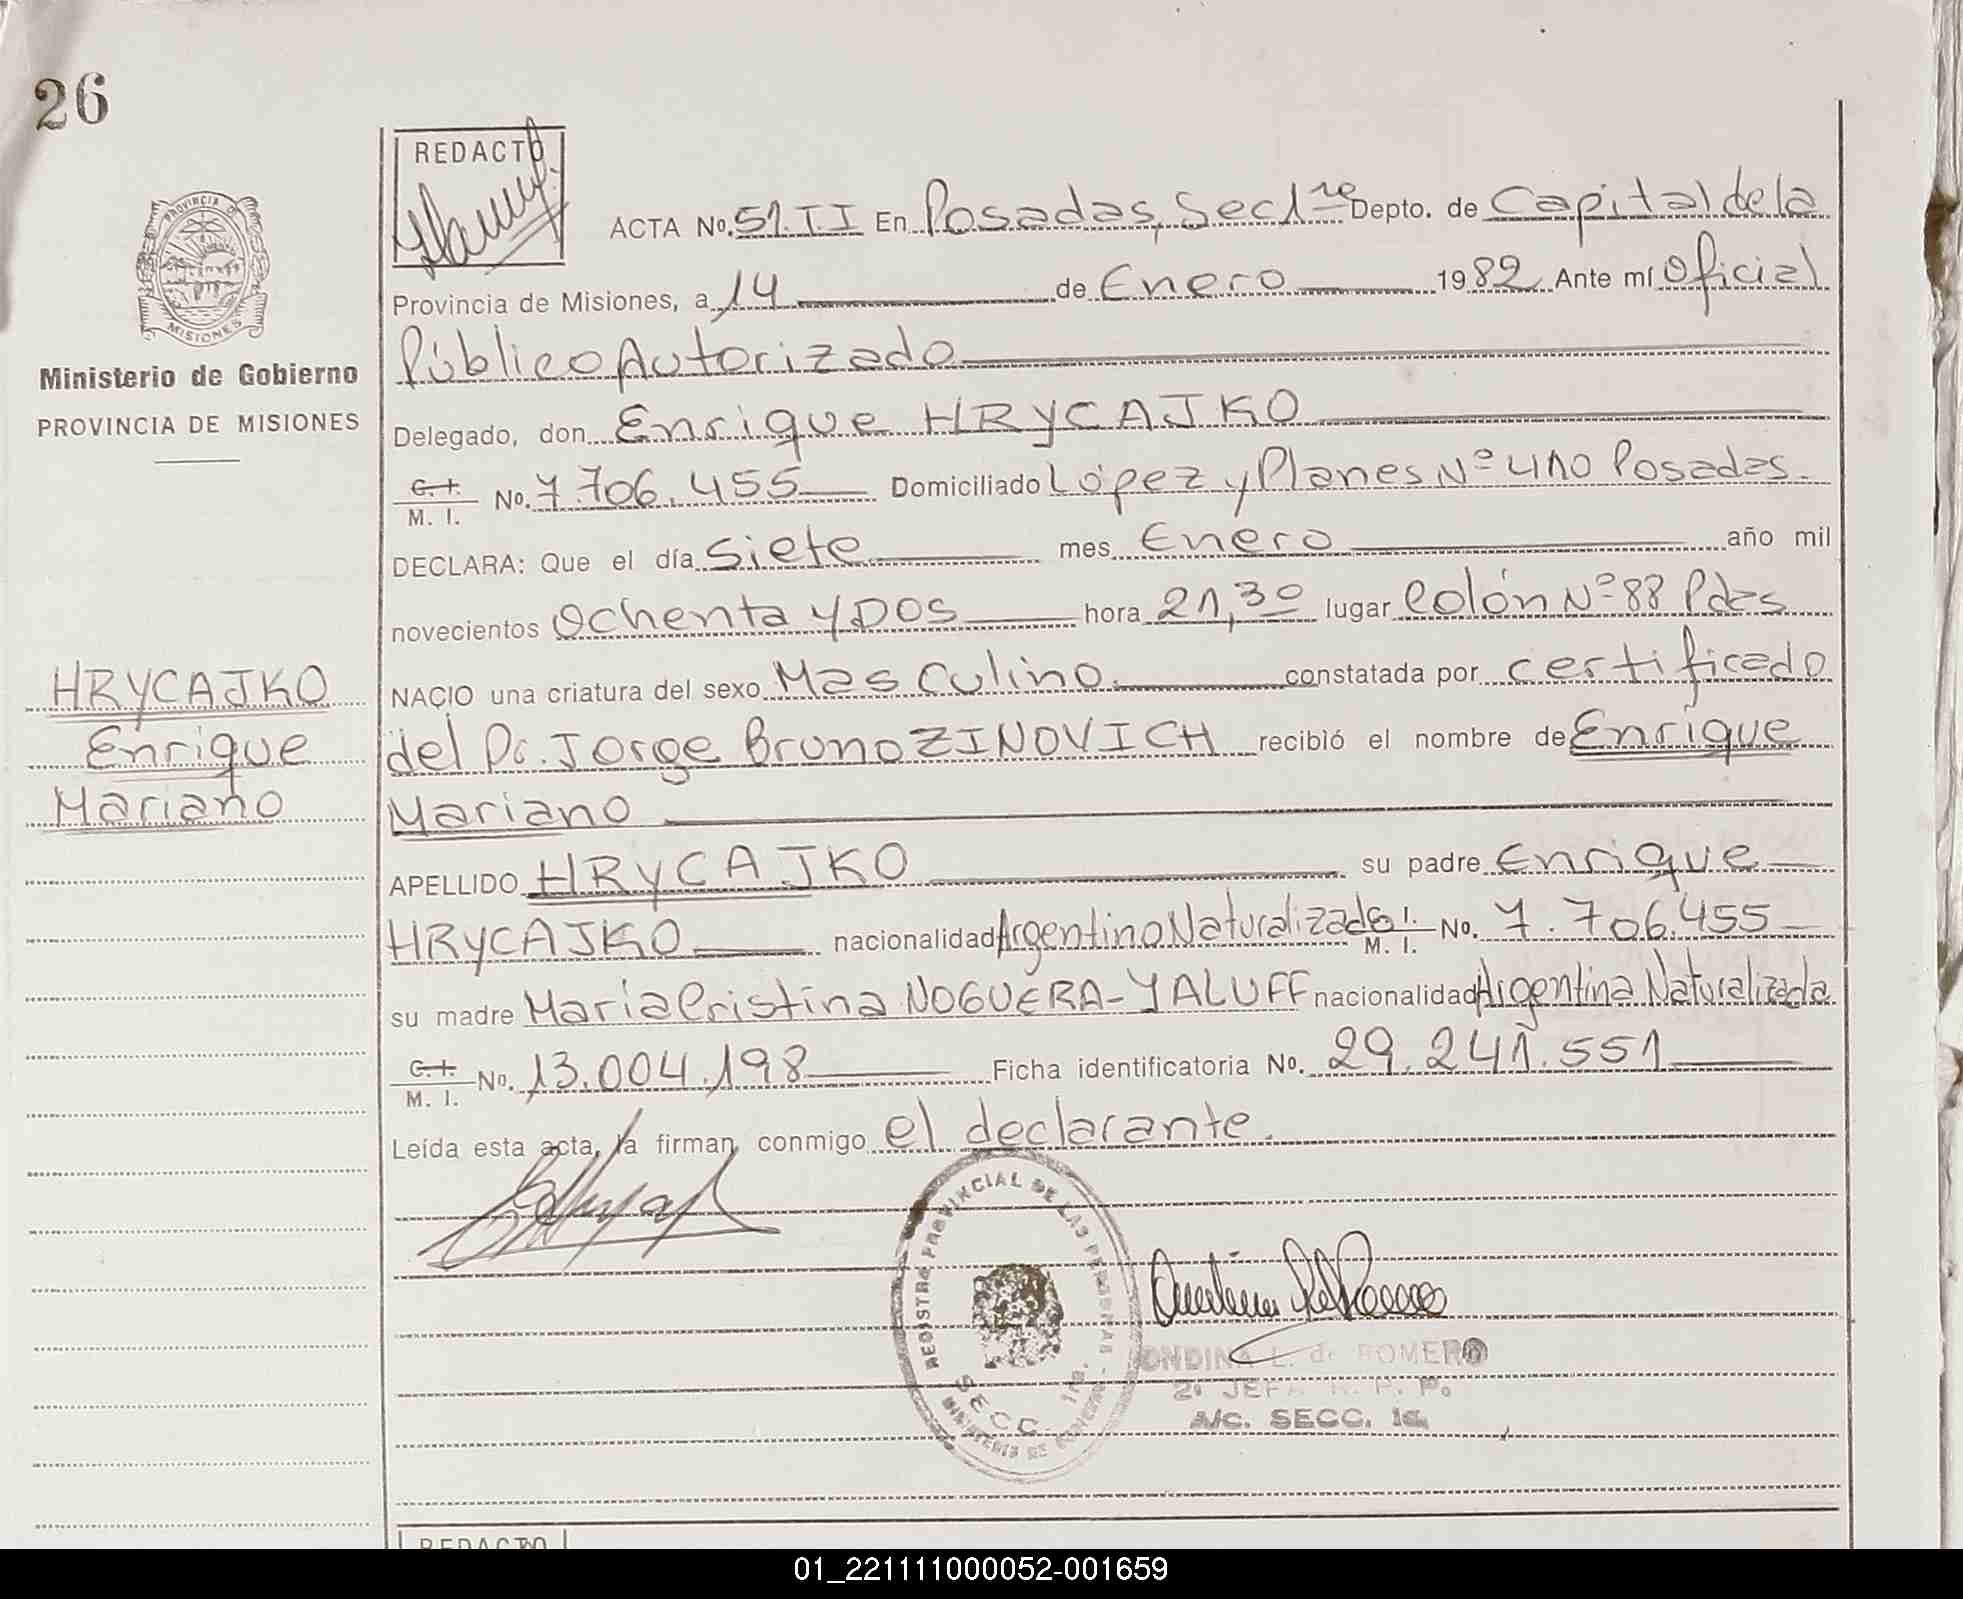 26
PROVINCIA D
MISIONES
Ministerio de Gobierno
PROVINCIA DE MISIONES
HRYCAJKO
Enrique
Mariano
REDACTO
ACTA No. 51.II En Posadas, Sec 1ra Depto. de Capital de la
Provincia de Misiones, a 14 de Enero 1982 Ante mí Oficial
Público Autorizado
Delegado, don Enrique HRYCAJKO
C. I. M. I. No. 7.706.455 Domiciliado López y Planes Nº 410 Posadas.
DECLARA: Que el día siete mes Enero año mil
novecientos Ochenta y DOS hora 21,30 lugar Colón Nº 88 Pdas
NACIO una criatura del sexo Masculino. constatada por certificado
del Dr. Jorge Bruno ZINOVICH recibió el nombre de Enrique
Mariano
APELLIDO HRYCAJKO su padre Enrique
HRYCAJKO nacionalidad Argentino Naturalizado C. I. M. I. No. 7.706.455
su madre María Cristina NOGUERA-YALUFF nacionalidad Argentina Naturalizada
C. I. M. I. No. 13.004.198 Ficha identificatoria No. 29.241.551
Leída esta acta, la firman conmigo el declarante.
REGISTRO PROVINCIAL DE LAS PERSONAS - SECC. 1ra. MINISTERIO DE GOBIERNO
ONDINA L. de ROMERO
2a JEFA R. P. P.
A/C. SECC. 1a.
REDACTO
01_221111000052-001659